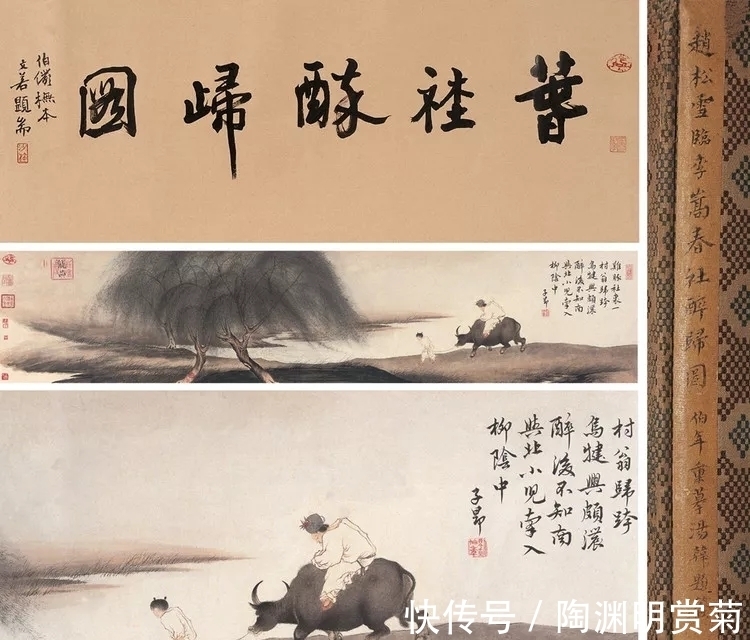 萅社醉歸圖
伯儼橅本
題耑
雞豚社一
村翁歸跨
烏犍興頗濃
醉後不知南
與北小兒牽入
柳陰中
子昂
村翁歸跨
烏犍興頗濃
醉後不知南
與北小兒牽入
柳陰中
子昂
趙松雪臨李嵩春社醉歸圖 伯年重摹湯題
快传号 / 陶渊明赏菊